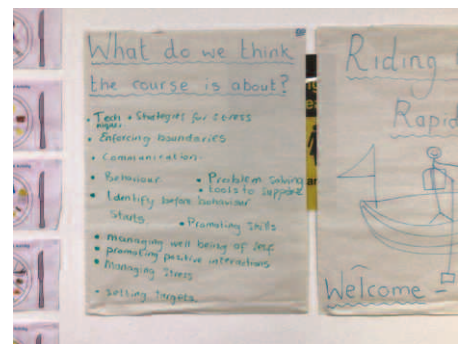 What do we think
the course is about?
• Tech • Strategies for stress
• Enforcing boundaries
• Communication
• Behaviour • Problem solving
• tools to support
• Identify before behaviour
starts
• Promoting skills
• managing well being of self
• promoting positive interactions
• Managing stress
• setting targets
Riding
Rapid
Welcome -